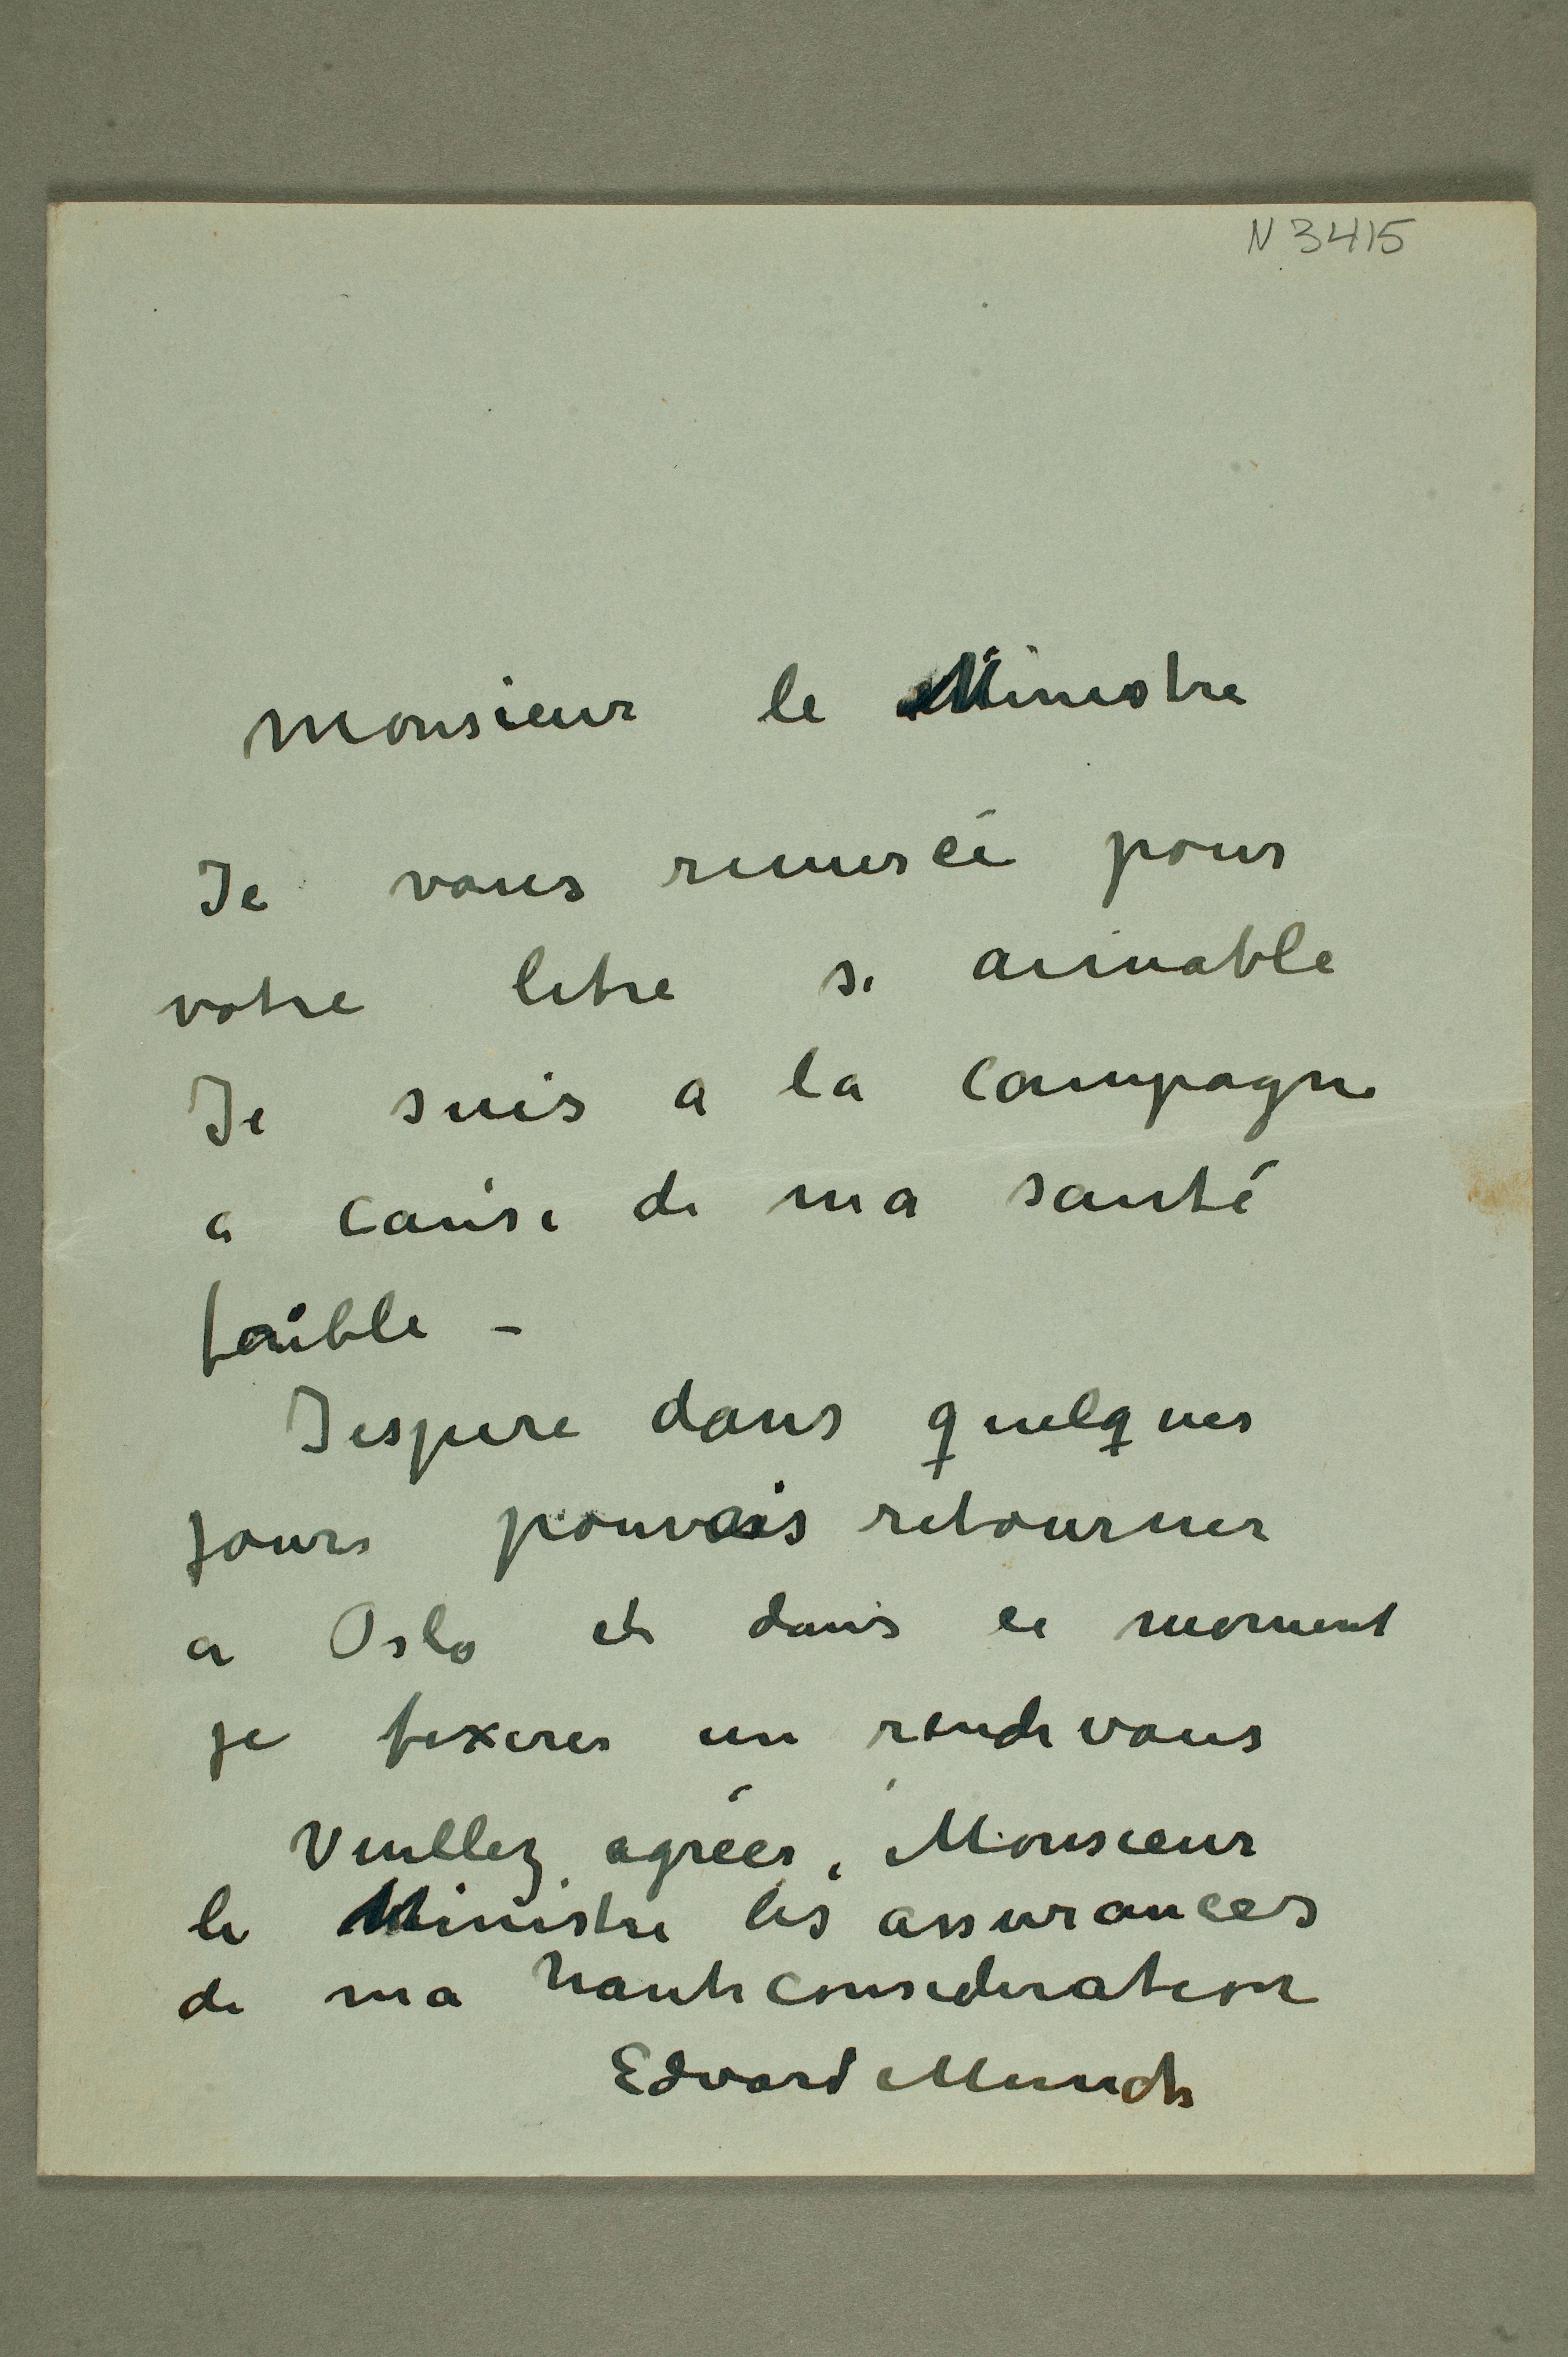 N 3415
Monsieur le Ministre
Je vous remercé pour
votre letre si aimable
Je suis a la compagne
a cause de ma santé
faible –
Jespere dans quelques
jours pouvais retourner
a Oslo et dans ce moment
je fixerer un rendevous
Veullez agréer, Monsieur
le Ministre les assurances
de ma haute consideration
Edvard Munch